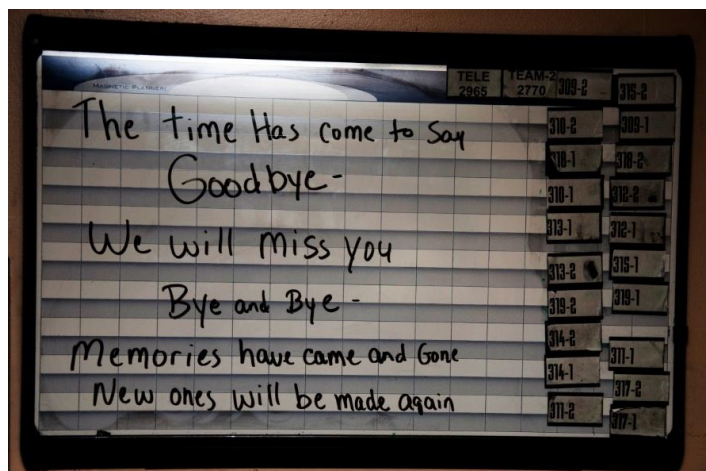 MAGNETIC PLANNER
TELE 2965
TEAM-2 2770
309-2
315-2
The time Has come to Say
Goodbye-
We will miss you
Bye and Bye-
Memories have came and Gone
New ones will be made again
310-2
309-1
318-1
318-2
310-1
312-2
313-1
312-1
313-2
315-1
319-2
319-1
314-2
314-1
311-1
317-2
311-2
317-1